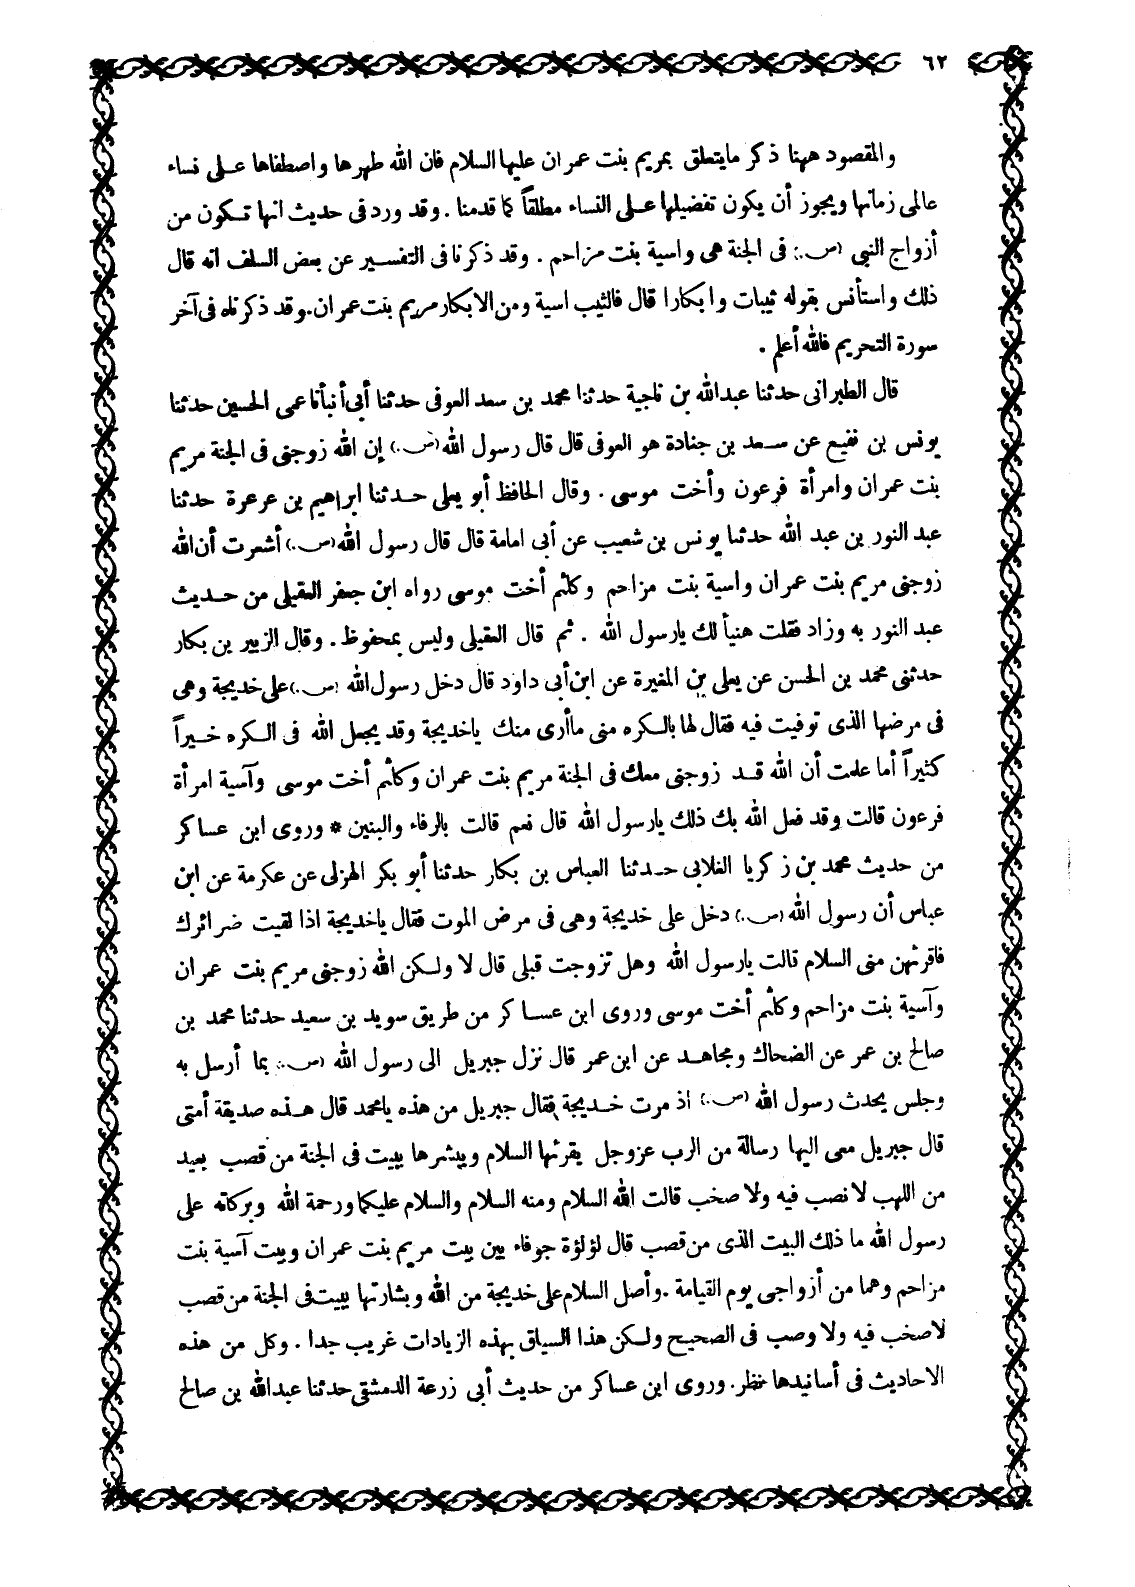 ٦٢
والمقصود ههنا ذكر مايتعلق بمريم بنت عمران عليها السلام فان الله طهرها واصطفاها على نساء
عالمى زمانها ويجوز أن يكون تفضيلها على النساء مطلقاً كما قدمنا . وقد ورد فى حديث انها تكون من
أزواج النبى (ص.) فى الجنة هى واسية بنت مزاحم . وقد ذكرنا فى التفسير عن بعض السلف انه قال
ذلك واستأنس بقوله ثيبات وابكارا قال فالثيب اسية ومن الابكار مريم بنت عمران . وقد ذكرناه فى آخر
سورة التحريم فالله أعلم .
قال الطبرانى حدثنا عبدالله بن ناجية حدثنا محمد بن سعد العوفى حدثنا أبى أنبأنا عمى الحسين حدثنا
يونس بن نفيع عن سعد بن جنادة هو العوفى قال قال رسول الله (ص.) إن الله زوجنى فى الجنة مريم
بنت عمران وامرأة فرعون وأخت موسى . وقال الحافظ أبو يعلى حدثنا ابراهيم بن عرعرة حدثنا
عبد النور بن عبد الله حدثنا يونس بن شعيب عن أبى امامة قال قال رسول الله (ص.) أشعرت أن الله
زوجنى مريم بنت عمران واسية بنت مزاحم وكلثم أخت موسى رواه ابن جعفر العقيلى من حديث
عبد النور به وزاد فقلت هنيأ لك يارسول الله . ثم قال العقيلى وليس بمحفوظ . وقال الزبير بن بكار
حدثنى محمد بن الحسن عن يعلى بن المغيرة عن ابن أبى داود قال دخل رسول الله (ص.) على خديجة وهى
فى مرضها الذى توفيت فيه فقال لها بالكره منى ماأرى منك ياخديجة وقد يجعل الله فى الكره خيراً
كثيراً أما علمت أن الله قد زوجنى معك فى الجنة مريم بنت عمران وكلثم أخت موسى وآسية امرأة
فرعون قالت وقد فعل الله بك ذلك يارسول الله قال نعم قالت بالرفاء والبنين * وروى ابن عساكر
من حديث محمد بن زكريا الغلابى حدثنا العباس بن بكار حدثنا أبو بكر الهزلى عن عكرمة عن ابن
عباس أن رسول الله (ص.) دخل على خديجة وهى فى مرض الموت فقال ياخديجة اذا لقيت ضرائرك
فاقرئهن منى السلام قالت يارسول الله وهل تزوجت قبلى قال لا ولكن الله زوجنى مريم بنت عمران
وآسية بنت مزاحم وكلثم أخت موسى وروى ابن عساكر من طريق سويد بن سعيد حدثنا محمد بن
صالح بن عمر عن الضحاك ومجاهد عن ابن عمر قال نزل جبريل الى رسول الله (ص.) بما أرسل به
وجلس يحدث رسول الله (ص.) اذ مرت خديجة فقال جبريل من هذه يامحمد قال هذه صديقة أمتى
قال جبريل معى اليها رسالة من الرب عزوجل يقرئها السلام ويبشرها ببيت فى الجنة من قصب بعيد
من اللهب لا نصب فيه ولا صخب قالت الله السلام ومنه السلام والسلام عليكما ورحمة الله وبركاته على
رسول الله ما ذلك البيت الذى من قصب قال لؤلؤة جوفاء بين بيت مريم بنت عمران وبيت آسية بنت
مزاحم وهما من أزواجى يوم القيامة . وأصل السلام على خديجة من الله وبشارتها ببيت فى الجنة من قصب
لاصخب فيه ولا وصب فى الصحيح ولكن هذا السياق بهذه الزيادات غريب جدا . وكل من هذه
الاحاديث فى أسانيدها نظر . وروى ابن عساكر من حديث أبى زرعة الدمشقى حدثنا عبدالله بن صالح